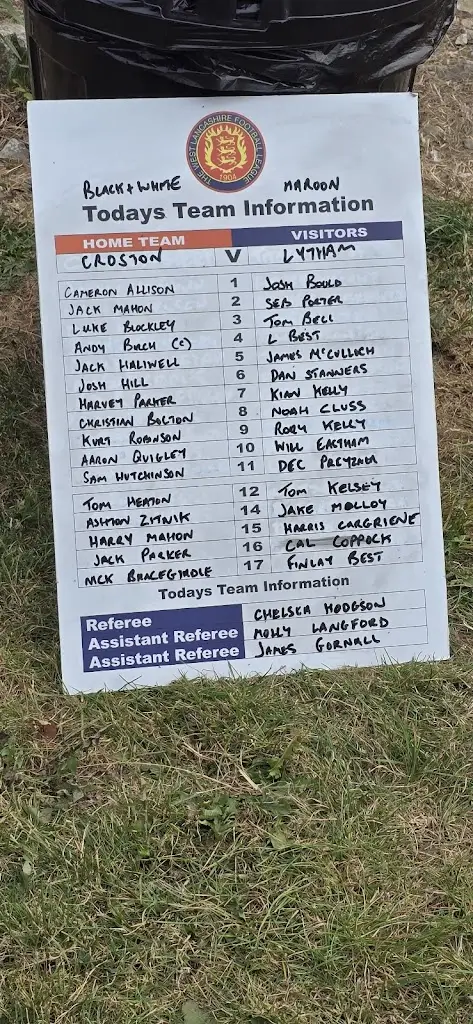 THE WEST LANCASHIRE FOOTBALL LEAGUE
1904
BLACK + WHITE MAROON
Todays Team Information
HOME TEAM VISITORS
CROSTON V LYTHAM
CAMERON ALLISON 1 JOSH BOULD
JACK MAHON 2 SEB PORTER
LUKE BUCKLEY 3 TOM BELL
ANDY BIRCH (C) 4 L BEST
JACK HALIWELL 5 JAMES McCULLICH
JOSH HILL 6 DAN STANNERS
HARVEY PARKER 7 KIAN KELLY
CHRISTIAN BOLTON 8 NOAH CLUSS
KURT ROBINSON 9 RORY KELLY
AARON QUIGLEY 10 WILL EASTHAM
SAM HUTCHINSON 11 DEC
TOM HEATON 12 TOM KELSEY
ASHTON ZITNIK 14 JAKE MOLLOY
HARRY MAHON 15 HARRIS CARGRIENE
JACK PARKER 16 CAL COPPOCK
NICK BRACEGIRDLE 17 FINLAY BEST
Todays Team Information
Referee CHELSEA HODGSON
Assistant Referee MOLLY LANGFORD
Assistant Referee JAMES GORNALL